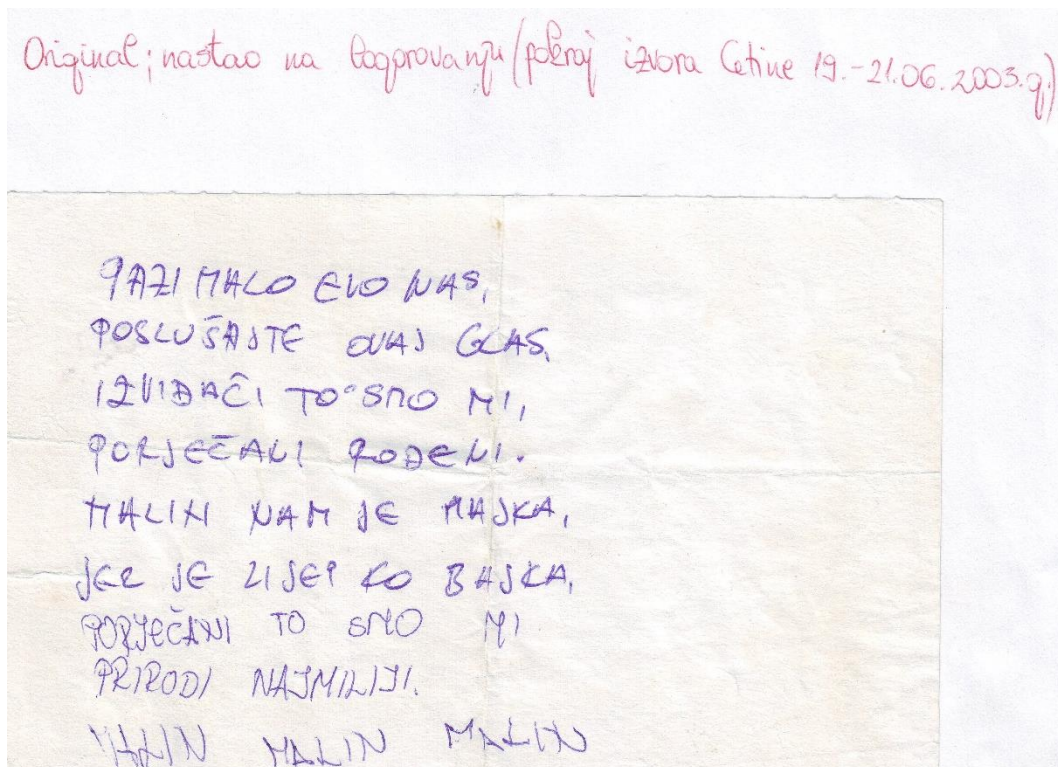 Original; nastao na logorovanju (pokraj izvora Cetine 19.-21.06.2003.g.)
PAZI MALO EVO NAS,
POSLUŠAJTE OVAJ GLAS.
IZVIĐAČI TO SMO MI,
PORJEČANI ROĐENI.
MALIN NAM JE MAJKA,
JER JE LIJEP KO BAJKA,
PORJEČANI TO SMO MI
PRIRODI NAJMILIJI.
MALIN MALIN MALIN